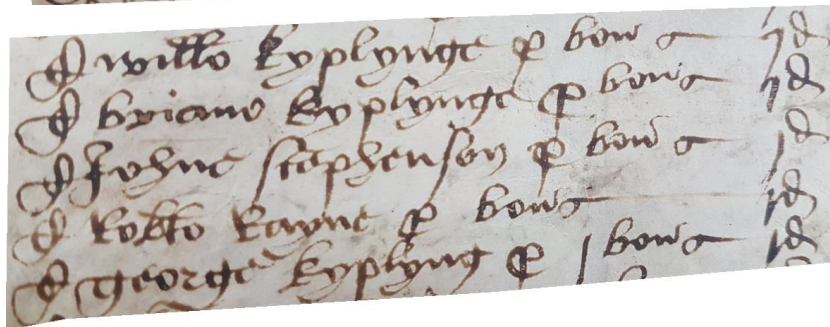 D willo kyplynge p bous jd
D briano kyplynge p bous jd
D Johne stephenson p bous jd
D Robto Rayne p bous jd
D george kyplyng p j bous jd